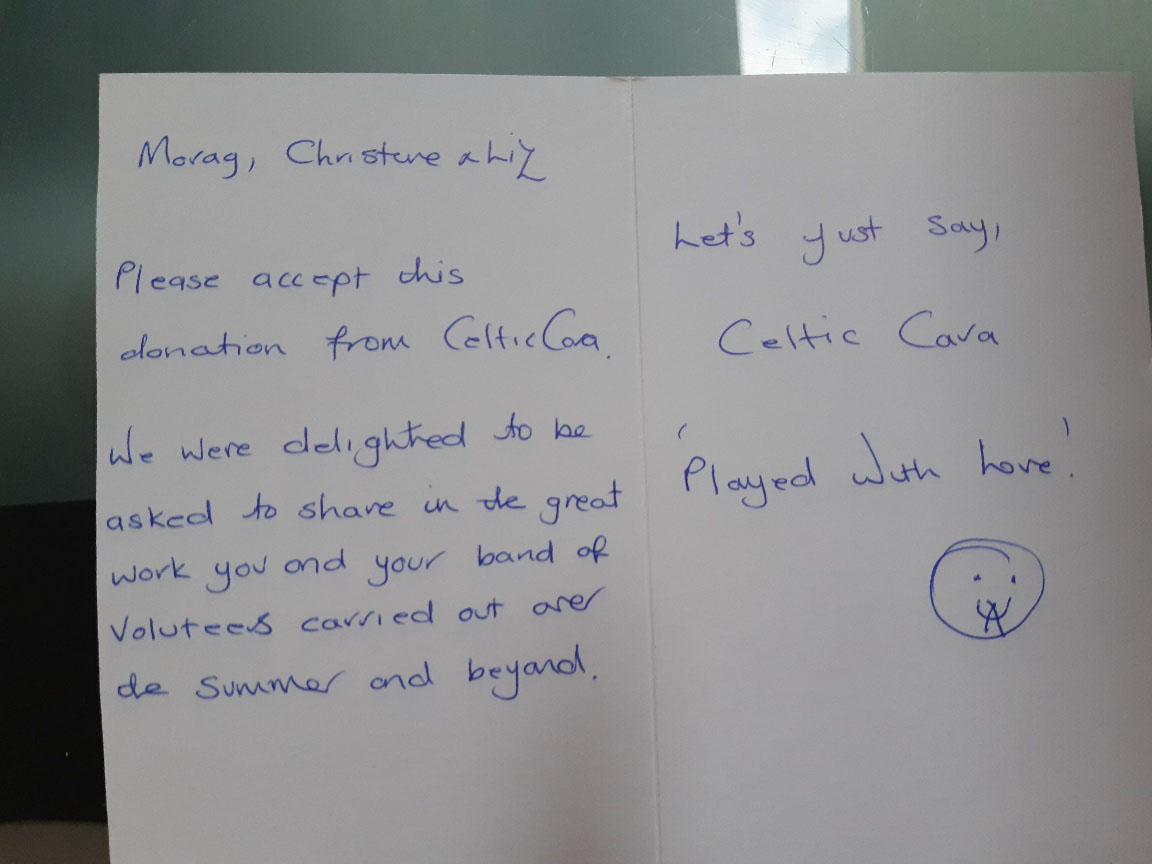 Morag, Christine & Liz
Please accept this
donation from Celtic Cara.
We were delighted to be
asked to share in the great
work you and your band of
Voluteers carried out over
the summer and beyond.
Let's just say,
Celtic Cara
'Played with love!'